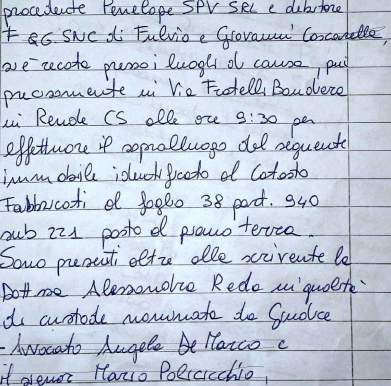 procedente Penelope SPV SRL e debitore
F & G. SNC di Fulvio e Giovanni Coscarella,
si è recata presso i luoghi di causa, più
precisamente in Via Fratelli Bandiera
in Rende CS alle ore 9:30 per
effettuare il sopralluogo del seguente
immobile identificato al Catasto
Fabbricati al foglio 38 part. 940
sub 221 posto al piano terra.
Sono presenti oltre alla scrivente la
Dott.ssa Alessandra Reda in qualità
di custode nominata da Giudice
- Avvocato Angelo De Marco e
il signor Mario Policicchio,